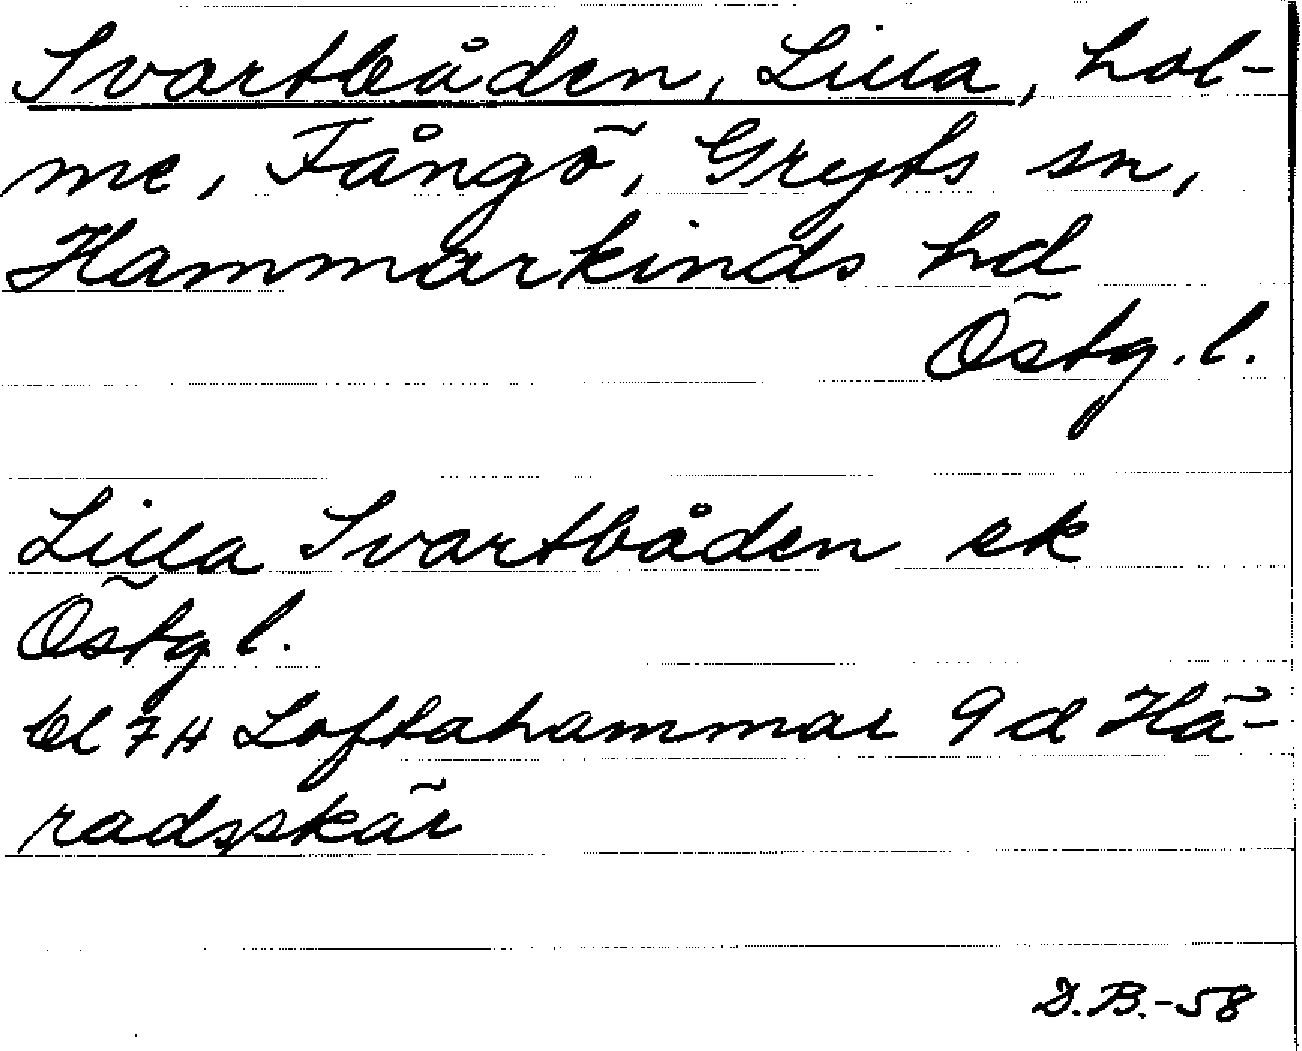 Svartbåden, Lilla, hol-
me, Fångö, Gryts sn,
Hammarkinds hd
Östg. l.
Lilla Svartbåden ek
Östg l.
bl 7H Loftahammar 9d Hä-
radsskär
D.B.-58